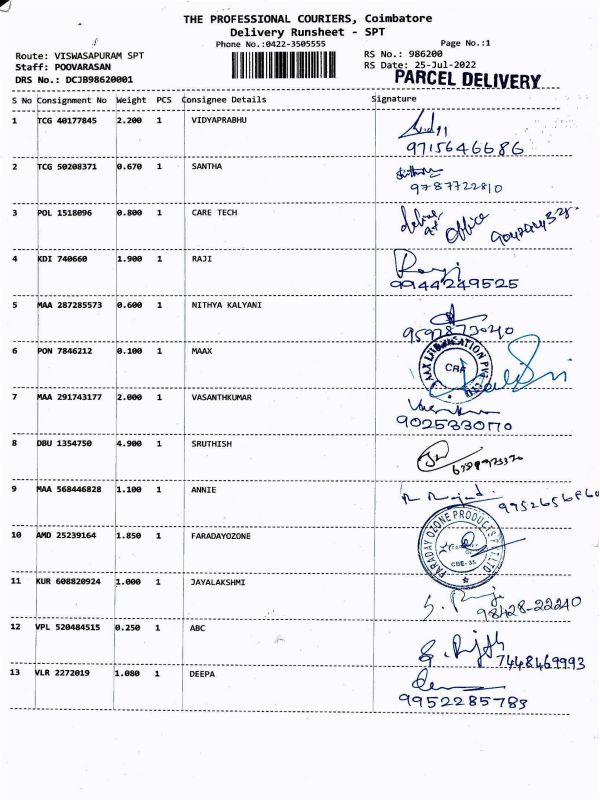 THE PROFESSIONAL COURIERS, Coimbatore
Delivery Runsheet - SPT
Phone No.:0422-3505555 Page No.:1
Route: VISWASAPURAM SPT RS No.: 986200
Staff: POOVARASAN RS Date: 25-Jul-2022
DRS No.: DCJB98620001 PARCEL DELIVERY
S No Consignment No Weight PCS Consignee Details Signature
1 TCG 40177845 2.200 1 VIDYAPRABHU
9715646686
2 TCG 50208371 0.670 1 SANTHA
9787722810
3 POL 1518096 0.800 1 CARE TECH
at office
4 KDI 740660 1.900 1 RAJI
Raji
9944249525
5 MAA 287285573 0.600 1 NITHYA KALYANI
9597873040
6 PON 7846212 0.100 1 MAAX
7 MAA 291743177 2.000 1 VASANTHKUMAR
9025330170
8 DBU 1354750 4.900 1 SRUTHISH
9 MAA 568446828 1.100 1 ANNIE
10 AMD 25239164 1.850 1 FARADAYOZONE
FARADAY OZONE PRODUCTS PVT LTD
CBE-35
11 KUR 608820924 1.000 1 JAYALAKSHMI
98428-22240
12 VPL 520484515 0.250 1 ABC
7448469993
13 VLR 2272019 1.080 1 DEEPA
9952285783